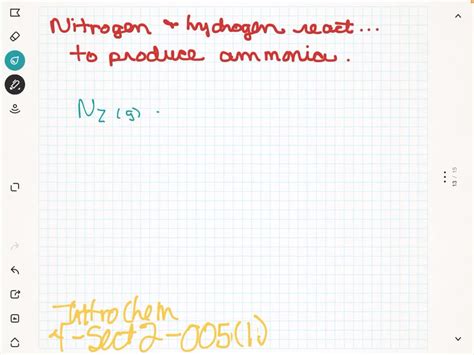 Nitrogen & hydrogen react...
to produce ammonia.
N2 (g)
Intro Chem
-Sect 2-005(1)
13 / 15